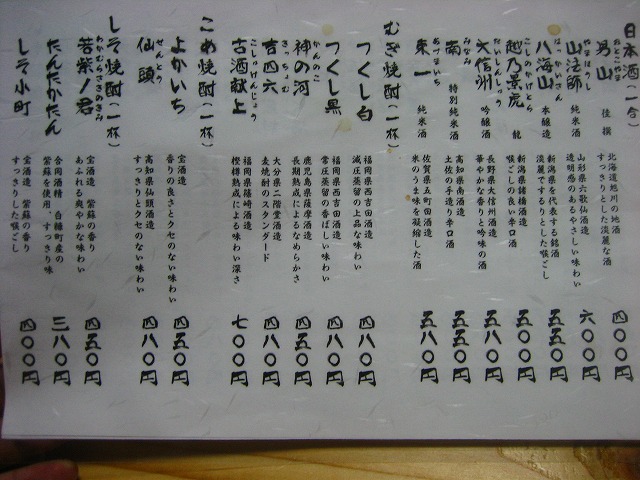 日本酒(一合)
おとこやま
男山 佳撰 北海道旭川の地酒 すっきりとした淡麗な酒 四〇〇円
やまほうし
山法師 純米酒 山形県六歌仙酒造 透明感のあるやさしい味わい 六〇〇円
はっかいさん
八海山 本醸造 新潟県を代表する銘酒 淡麗でするりとした喉ごし 五五〇円
こしのかげとら
越乃景虎 龍 新潟県諸橋酒造 喉ごしの良い辛口酒 五〇〇円
だいしんしゅう
大信州 吟醸酒 長野県大信州酒造 華やかな香りと吟味の酒 五八〇円
みなみ
南 特別純米酒 高知県南酒造 土佐の手造り辛口酒 五五〇円
あづまいち
東一 純米酒 佐賀県五町田酒造 米のうま味を凝縮した酒 五八〇円
むぎ焼酎(一杯)
つくし白 福岡県西吉田酒造 減圧蒸留の上品な味わい 四八〇円
つくし黒 福岡県西吉田酒造 常圧蒸留の香ばしい味わい 四八〇円
かんのこ
神の河 鹿児島県薩摩酒造 長期熟成によるなめらかさ 四五〇円
きっちょむ
吉四六 大分県二階堂酒造 麦焼酎のスタンダード 四八〇円
こしゅけんじょう
古酒献上 福岡県篠崎酒造 樫樽熟成による味わい深さ 七〇〇円
こめ焼酎(一杯)
よかいち 宝酒造 香りの良さとクセのない味わい 四五〇円
せんとう
仙頭 高知県仙頭酒造 すっきりとクセのない味わい 四八〇円
しそ焼酎(一杯)
わかむらさきのきみ
若紫ノ君 宝酒造 紫蘇の香り あふれる爽やかな味わい 四五〇円
たんたかたん 合同酒精 白糠町産の 紫蘇を使用、すっきり味 三八〇円
しそ小町 宝酒造 紫蘇の香り すっきりした喉ごし 四〇〇円